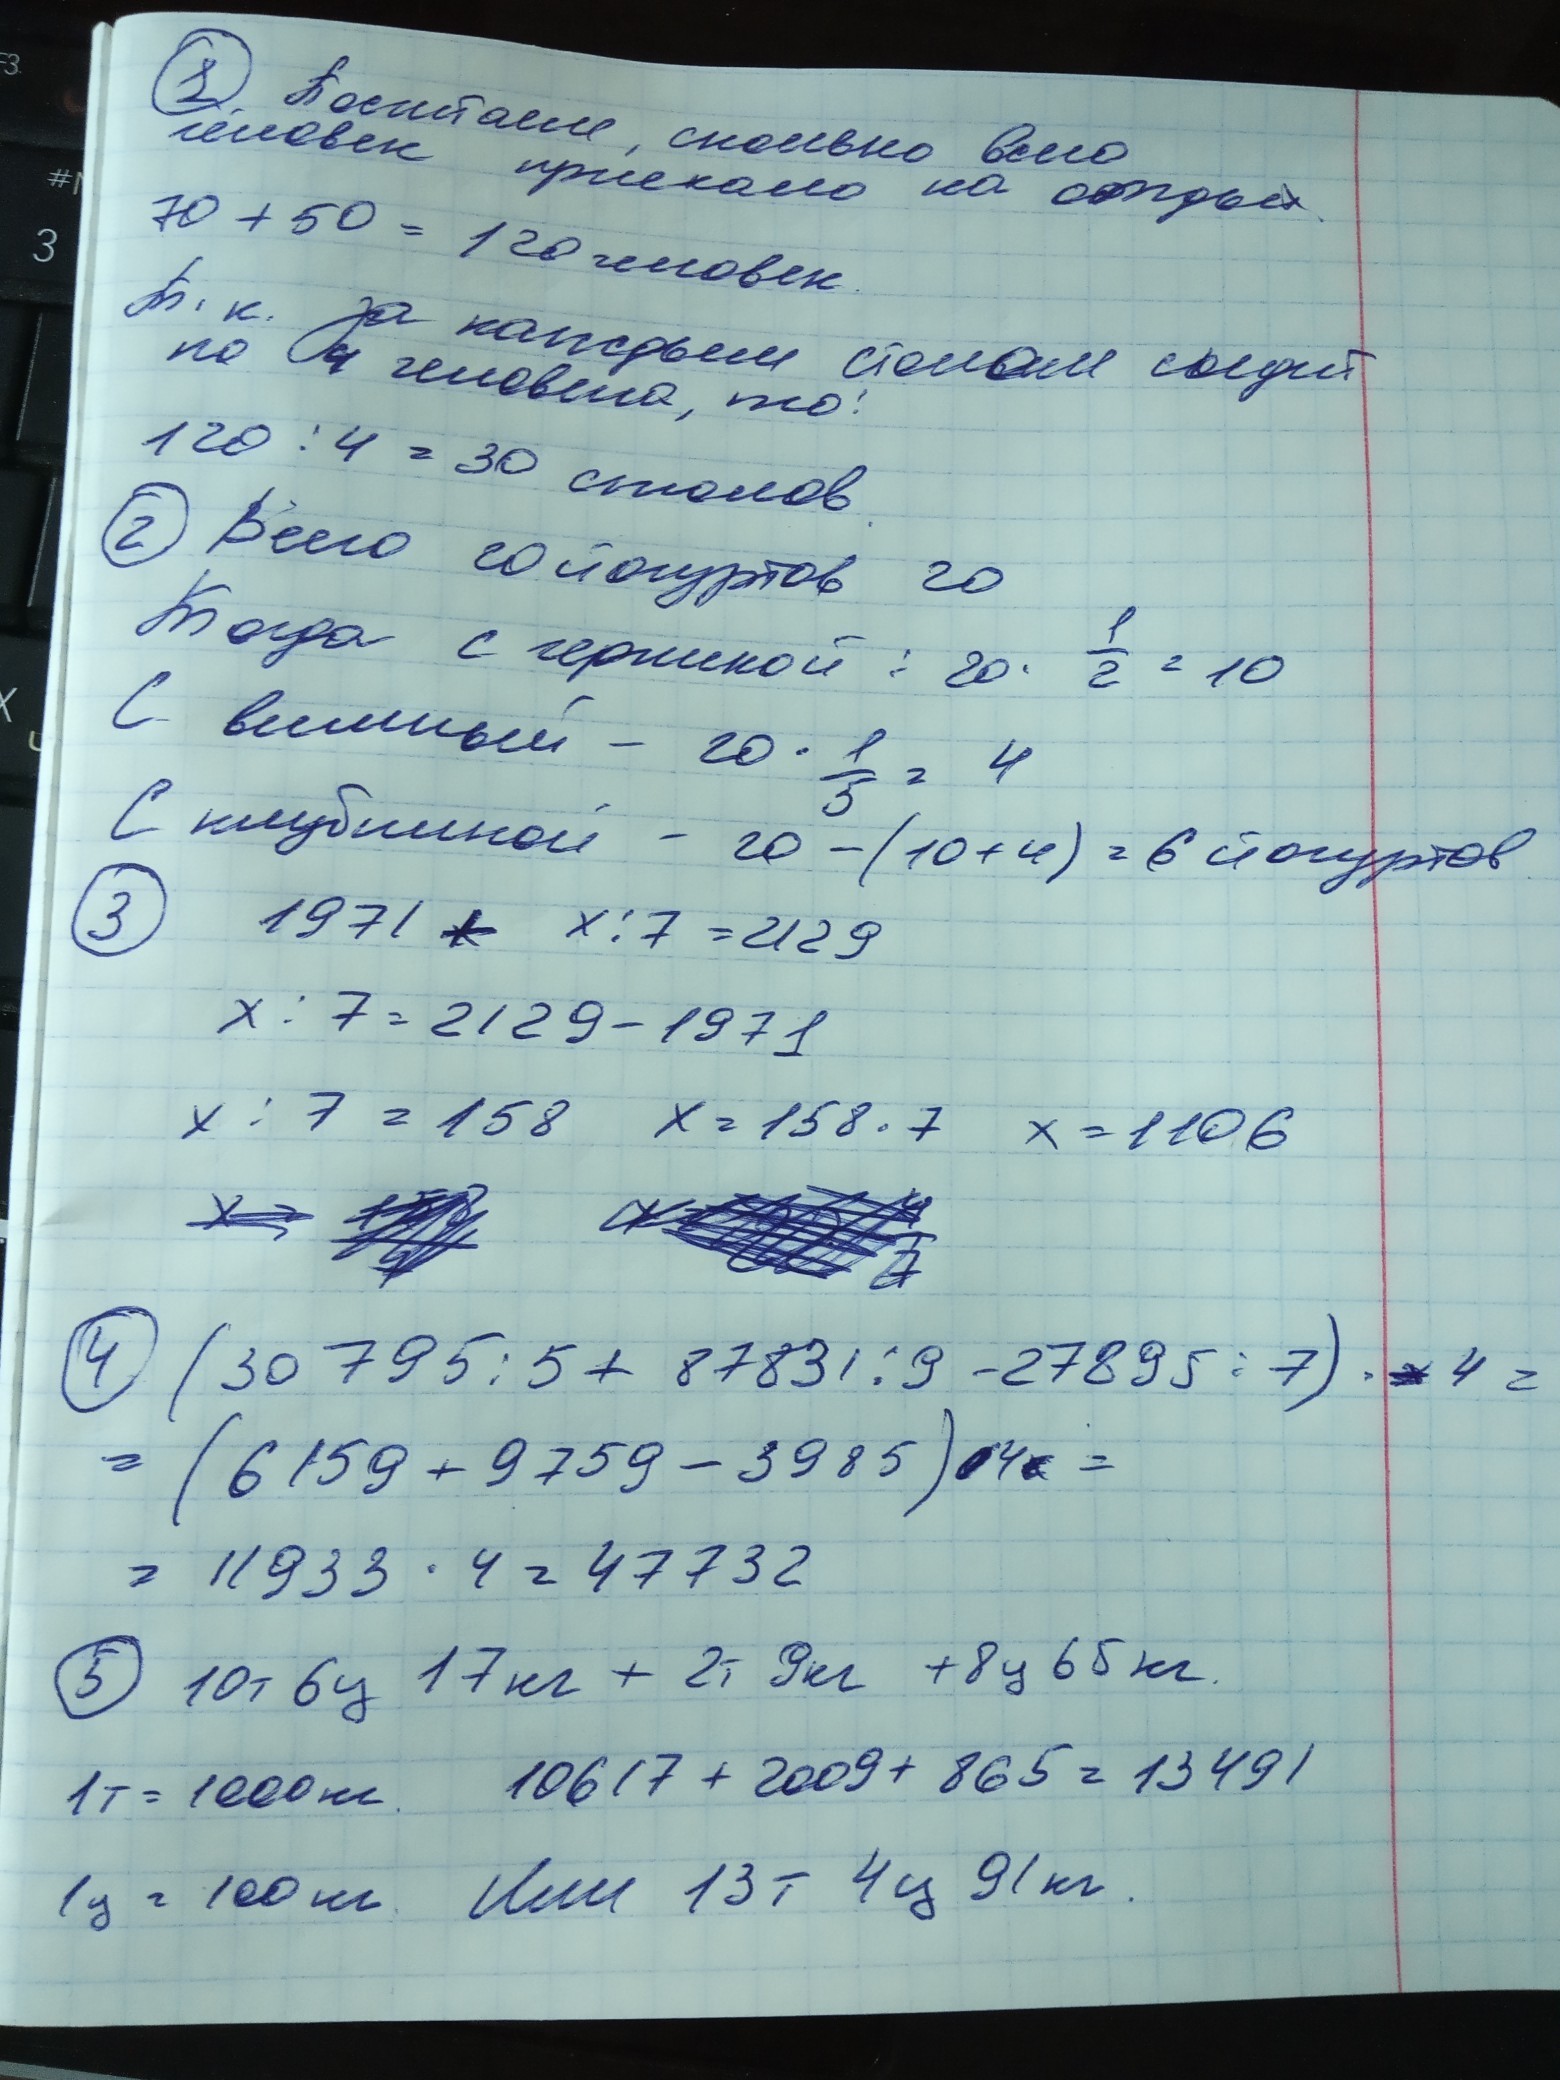 1. Посчитаем, сколько всего
человек приехало на отдых.
70 + 50 = 120 человек.
Т.к. за каждым столом сидит
по 4 человека, то:
120 : 4 = 30 столов.
2 Всего 20 йогуртов 20
Тогда с черникой : 20 · 1/2 = 10
С вишнёй - 20 · 1/5 = 4
С клубникой - 20 - (10+4) = 6 йогуртов
3 1971 + x:7 = 2129
x : 7 = 2129 - 1971
x : 7 = 158 x = 158 · 7 x = 1106
4 (30795:5 + 87831:9 - 27895:7) · 4 =
= (6159 + 9759 - 3985) · 4 =
= 11933 · 4 = 47732
5 10т 6ц 17кг + 2т 9кг + 8ц 65кг.
1т = 1000кг. 10617 + 2009 + 865 = 13491
1ц = 100кг. Или 13т 4ц 91кг.